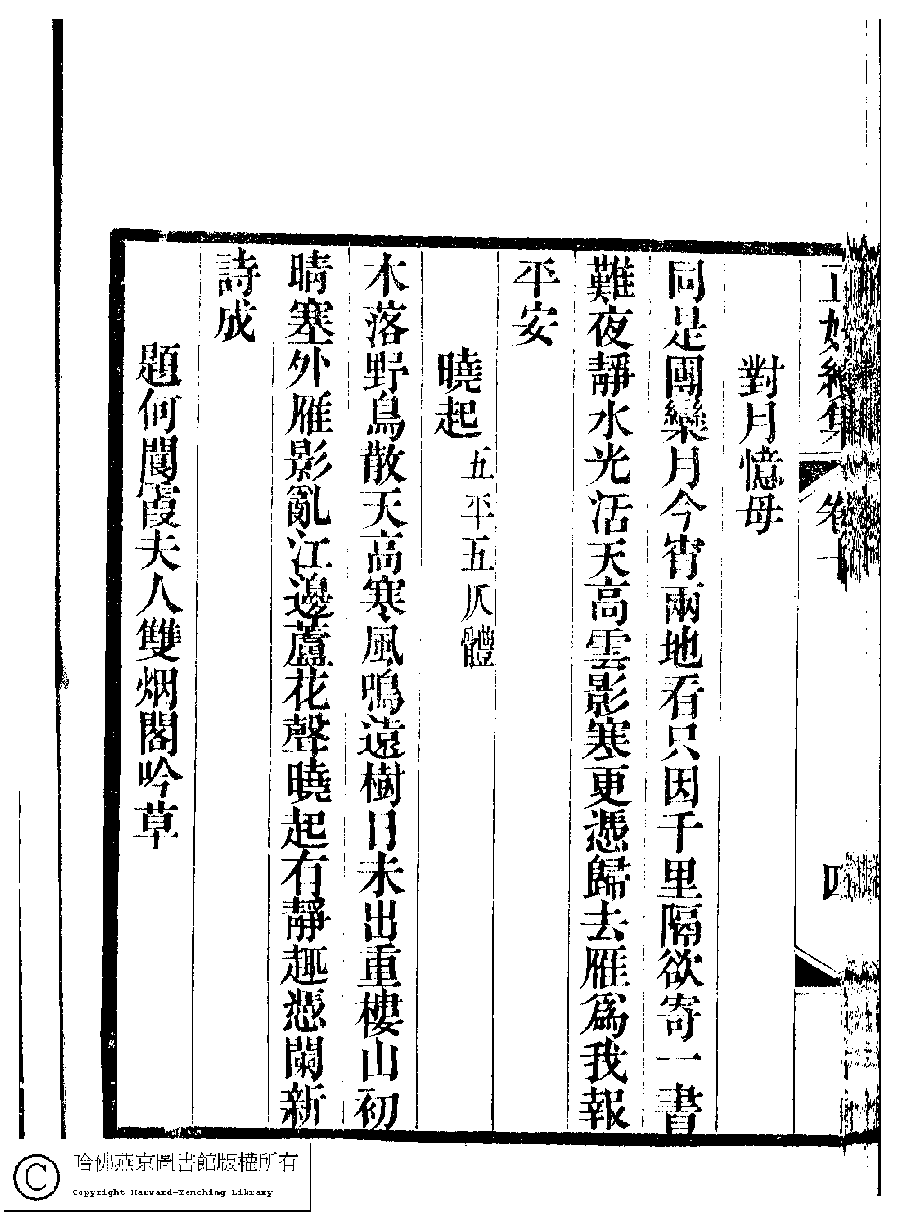 對月憶母
同是團欒月今宵兩地看只因千里隔欲寄一書
難夜靜水光活天高雲影寒更憑歸去雁爲我報
平安
曉起 五平五仄體
木落野鳥散天高寒風鳴遠樹日未出重樓山初
晴塞外雁影亂江邊蘆花聲曉起有靜趣憑闌新
詩成
題何閬霞夫人雙烟閣吟草
哈佛燕京圖書館版權所有
Copyright Harvard-Yenching Library